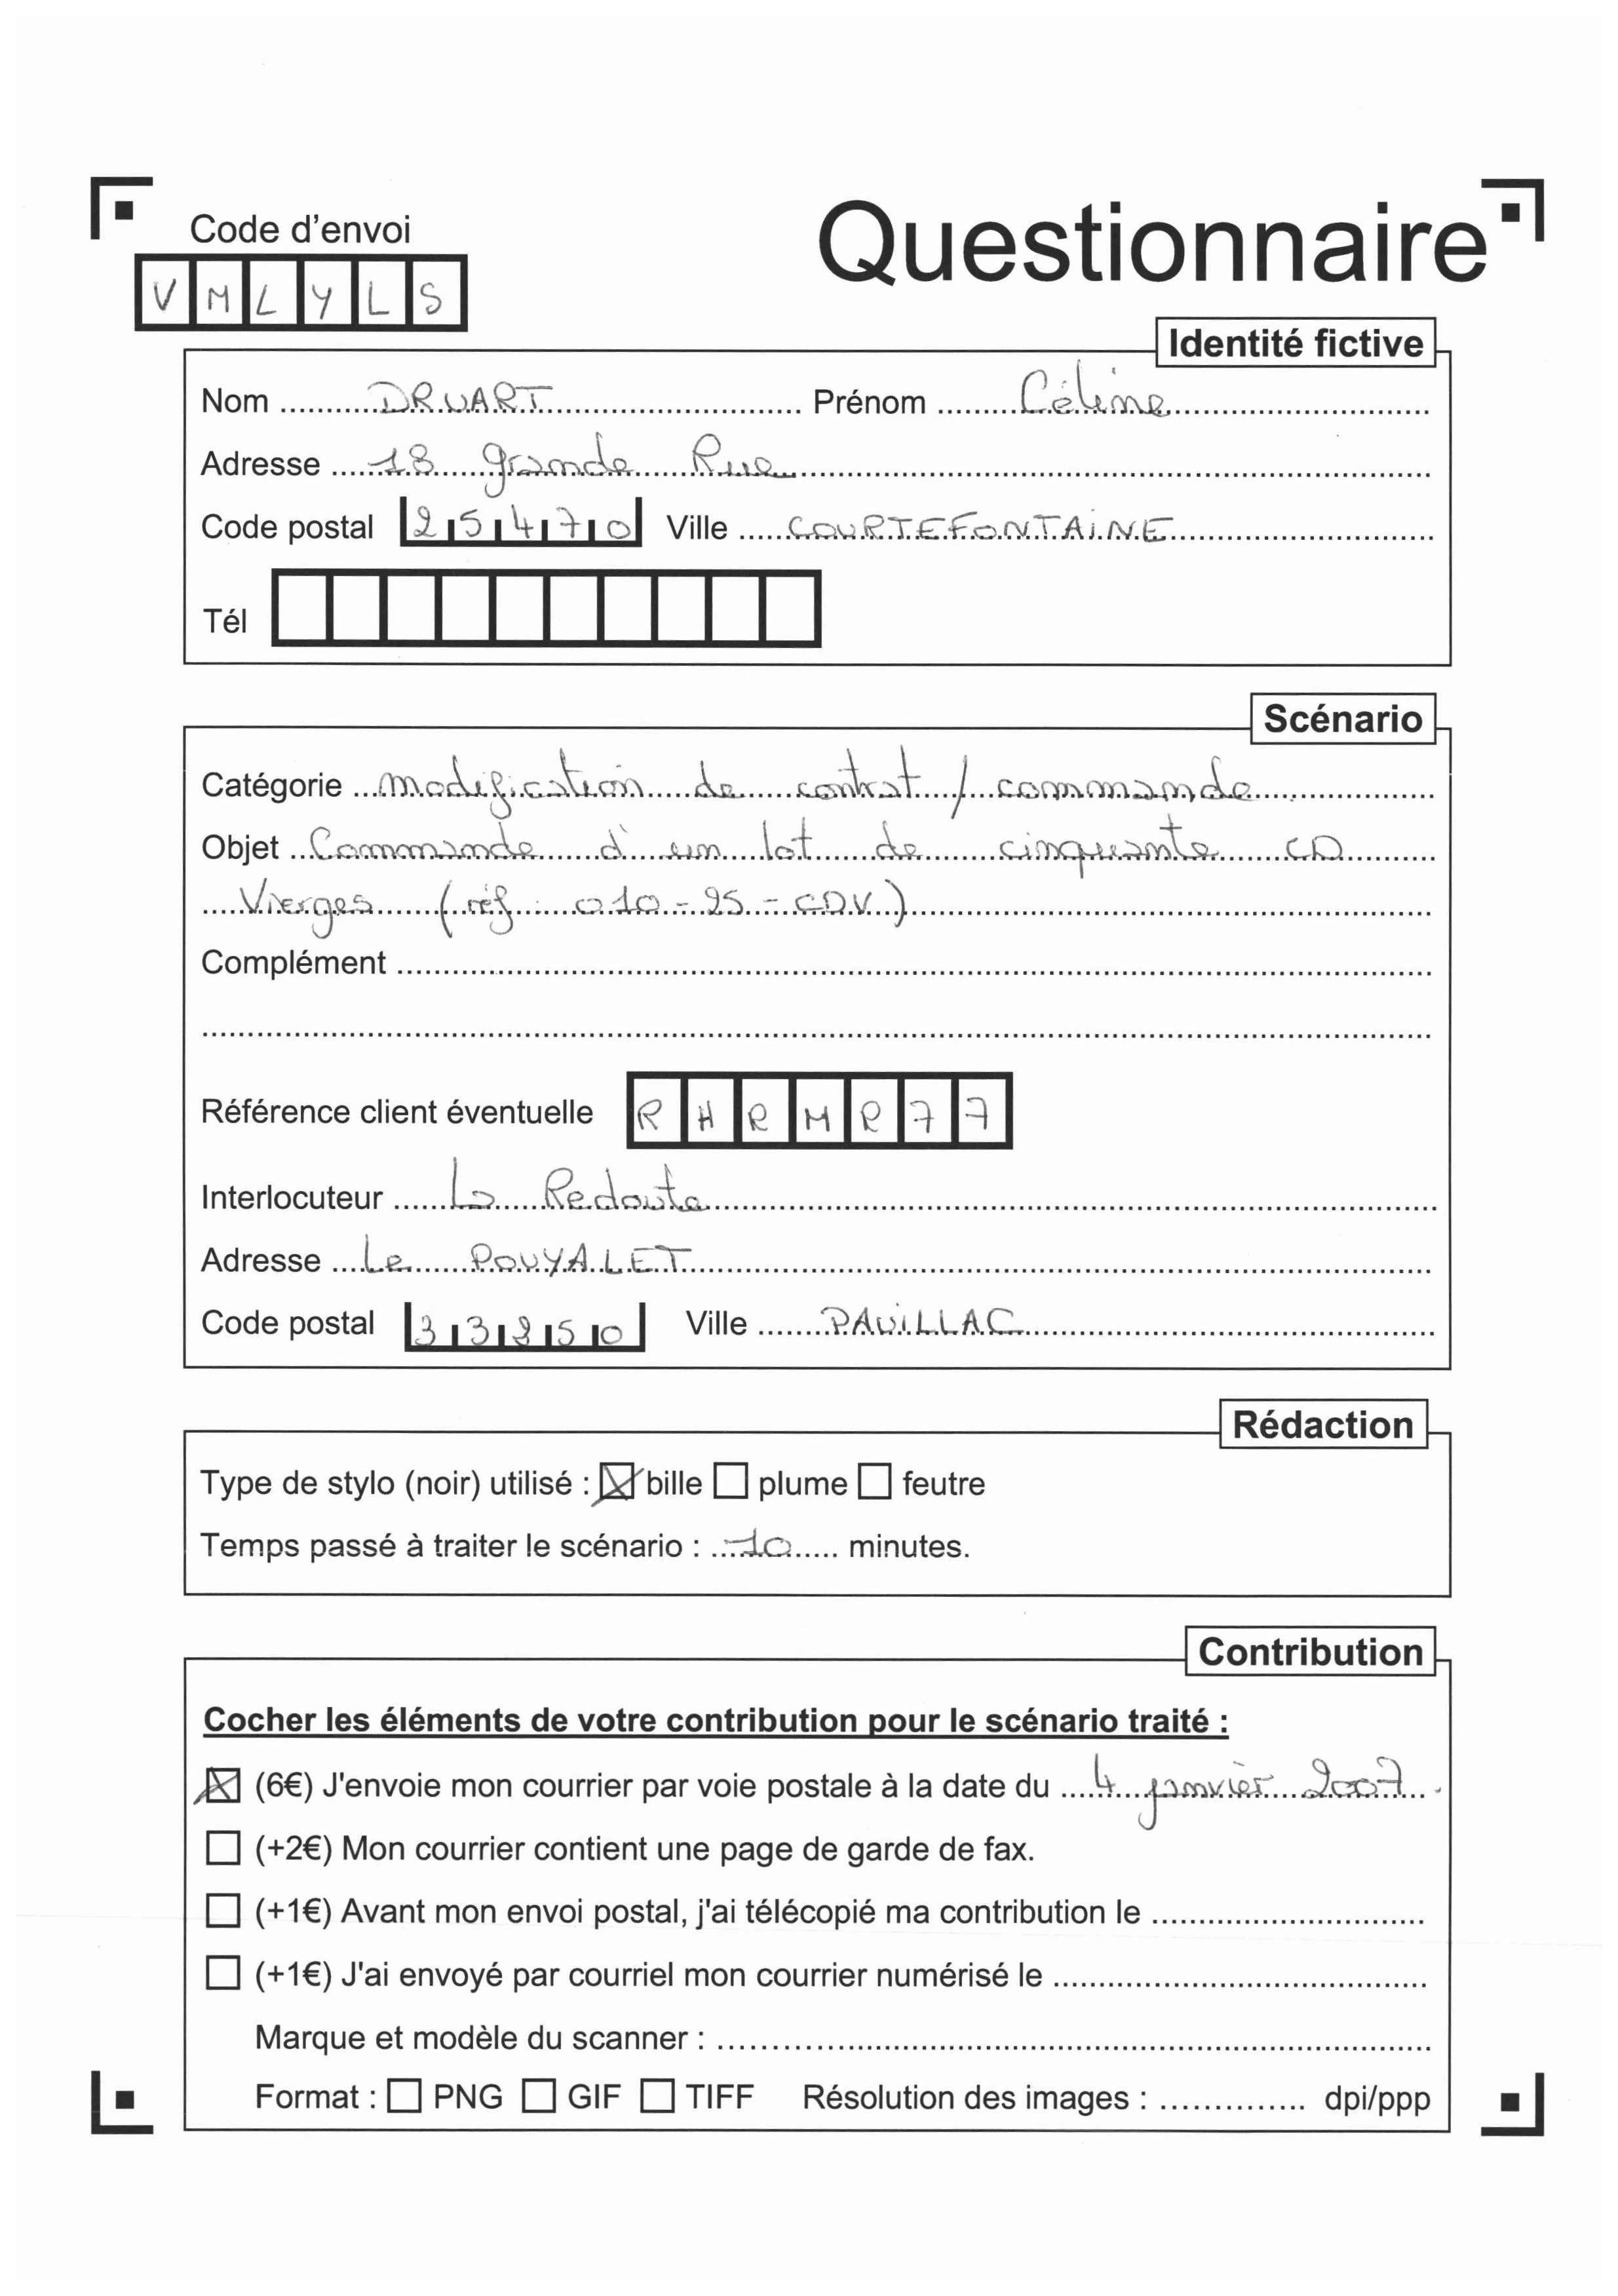 Code d'envoi
Questionnaire
VMLYLS
Identité fictive
Nom DRUART Prénom Céline
Adresse 18 grande Rue
Code postal 25470 Ville COURTEFONTAINE
Tél
Scénario
Catégorie modification de contrat / commande
Objet Commande d'un lot de cinquante CD
Vierges (réf : 010-95-CDV)
Complément
Référence client éventuelle RHRMR77
Interlocuteur La Redoute
Adresse Le POUYALET
Code postal 33250 Ville PAUILLAC
Rédaction
Type de stylo (noir) utilisé : bille plume feutre
Temps passé à traiter le scénario : 10 minutes.
Contribution
Cocher les éléments de votre contribution pour le scénario traité :
(6€) J'envoie mon courrier par voie postale à la date du 4 janvier 2007.
(+2€) Mon courrier contient une page de garde de fax.
(+1€) Avant mon envoi postal, j'ai télécopié ma contribution le
(+1€) J'ai envoyé par courriel mon courrier numérisé le
Marque et modèle du scanner :
Format : PNG GIF TIFF Résolution des images : dpi/ppp